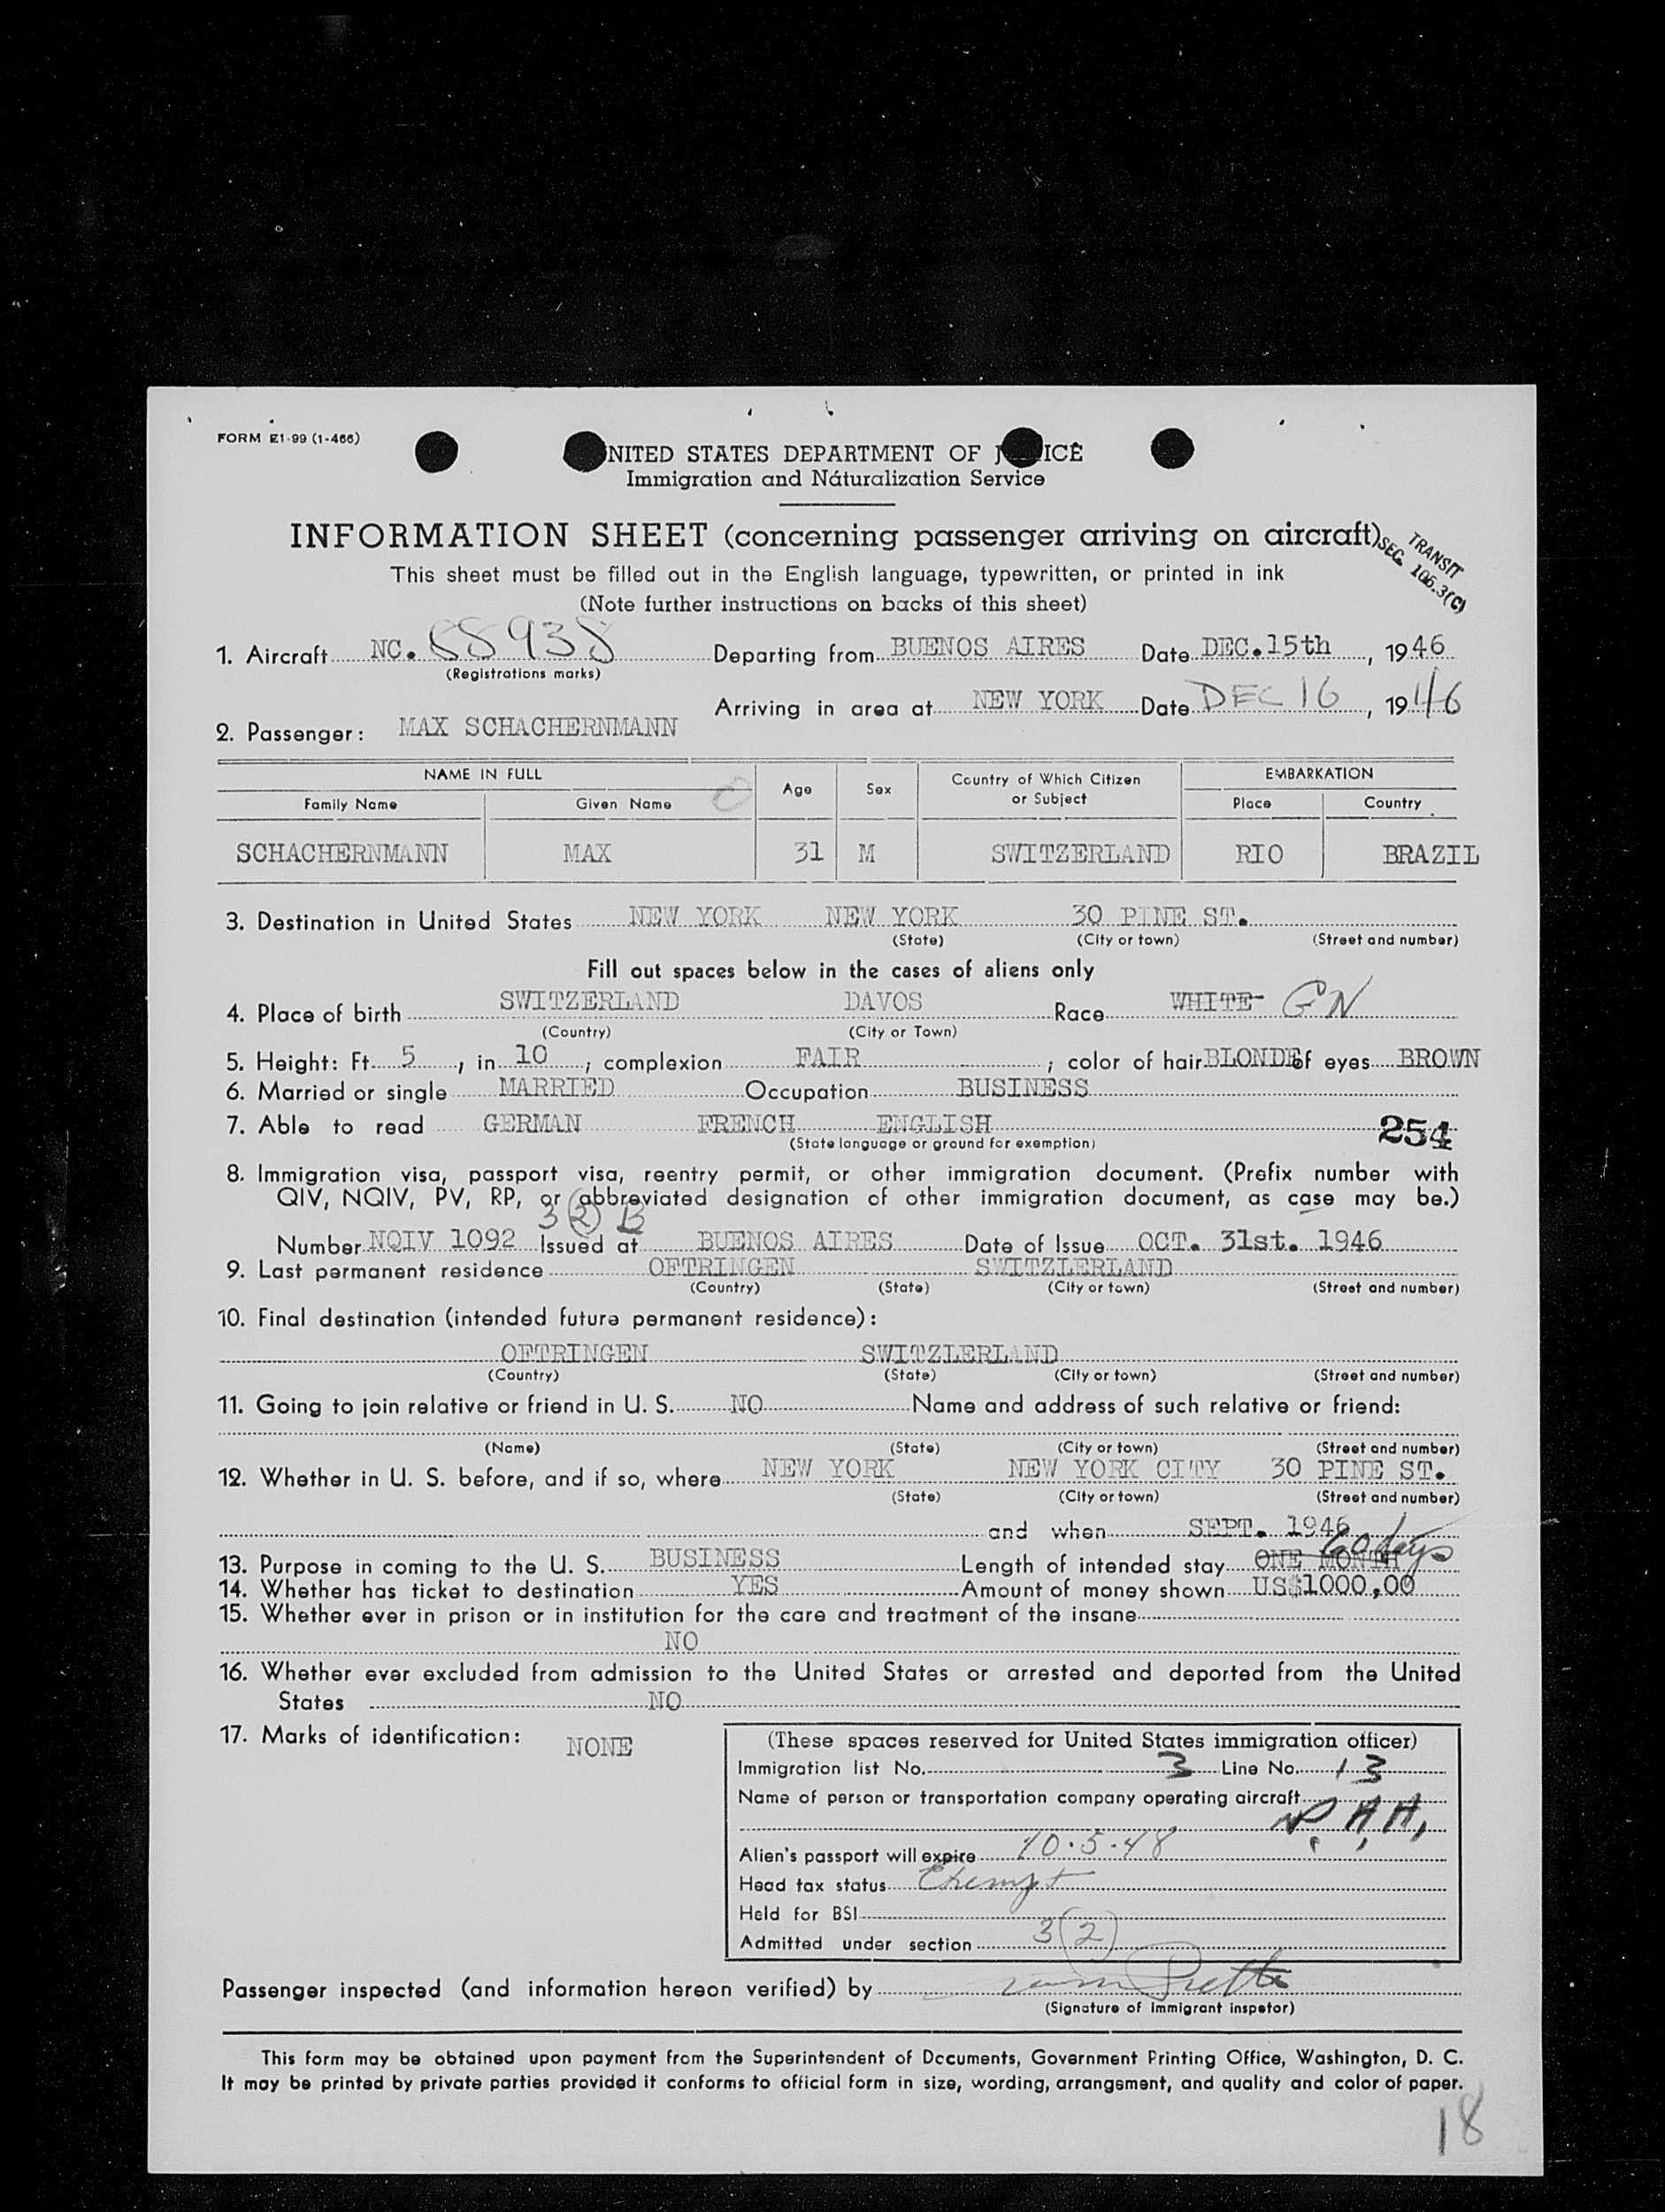 FORM E1-99 (1-466)
NITED STATES DEPARTMENT OF J ICE
Immigration and Náturalization Service
INFORMATION SHEET (concerning passenger arriving on aircraft)
TRANSIT
SEC. 106.3(C)
This sheet must be filled out in the English language, typewritten, or printed in ink
(Note further instructions on backs of this sheet)
1. Aircraft NC. 88938 Departing from BUENOS AIRES Date DEC.15th, 1946
(Registrations marks)
Arriving in area at NEW YORK Date DEC 16, 1946
2. Passenger: MAX SCHACHERNMANN
NAME IN FULL Age Sex Country of Which Citizen or Subject EMBARKATION
Family Name Given Name Place Country
SCHACHERNMANN MAX 31 M SWITZERLAND RIO BRAZIL
3. Destination in United States NEW YORK NEW YORK 30 PINE ST.
(State) (City or town) (Street and number)
Fill out spaces below in the cases of aliens only
4. Place of birth SWITZERLAND DAVOS Race WHITE- GN
(Country) (City or Town)
5. Height: Ft. 5, in. 10; complexion FAIR; color of hair BLONDE of eyes BROWN
6. Married or single MARRIED Occupation BUSINESS
7. Able to read GERMAN FRENCH ENGLISH 254
(State language or ground for exemption)
8. Immigration visa, passport visa, reentry permit, or other immigration document. (Prefix number with
QIV, NQIV, PV, RP, or abbreviated designation of other immigration document, as case may be.)
3 (2) B
Number NQIV 1092 Issued at BUENOS AIRES Date of Issue OCT. 31st. 1946
9. Last permanent residence OFTRINGEN SWITZLERLAND
(Country) (State) (City or town) (Street and number)
10. Final destination (intended future permanent residence):
OFTRINGEN SWITZLERLAND
(Country) (State) (City or town) (Street and number)
11. Going to join relative or friend in U. S. NO Name and address of such relative or friend:
(Name) (State) (City or town) (Street and number)
12. Whether in U. S. before, and if so, where NEW YORK NEW YORK CITY 30 PINE ST.
(State) (City or town) (Street and number)
and when SEPT. 1946
60 days
13. Purpose in coming to the U. S. BUSINESS Length of intended stay ONE MONTH
14. Whether has ticket to destination YES Amount of money shown US$1000,00
15. Whether ever in prison or in institution for the care and treatment of the insane
NO
16. Whether ever excluded from admission to the United States or arrested and deported from the United
States NO
17. Marks of identification: NONE
(These spaces reserved for United States immigration officer)
Immigration list No. 3 Line No. 13
Name of person or transportation company operating aircraft
P. A. A.
Alien's passport will expire 10·5·48
Head tax status Exempt
Held for BSI
Admitted under section 3(2)
Passenger inspected (and information hereon verified) by
(Signature of immigrant inspetor)
This form may be obtained upon payment from the Superintendent of Documents, Government Printing Office, Washington, D. C.
It may be printed by private parties provided it conforms to official form in size, wording, arrangement, and quality and color of paper.
18